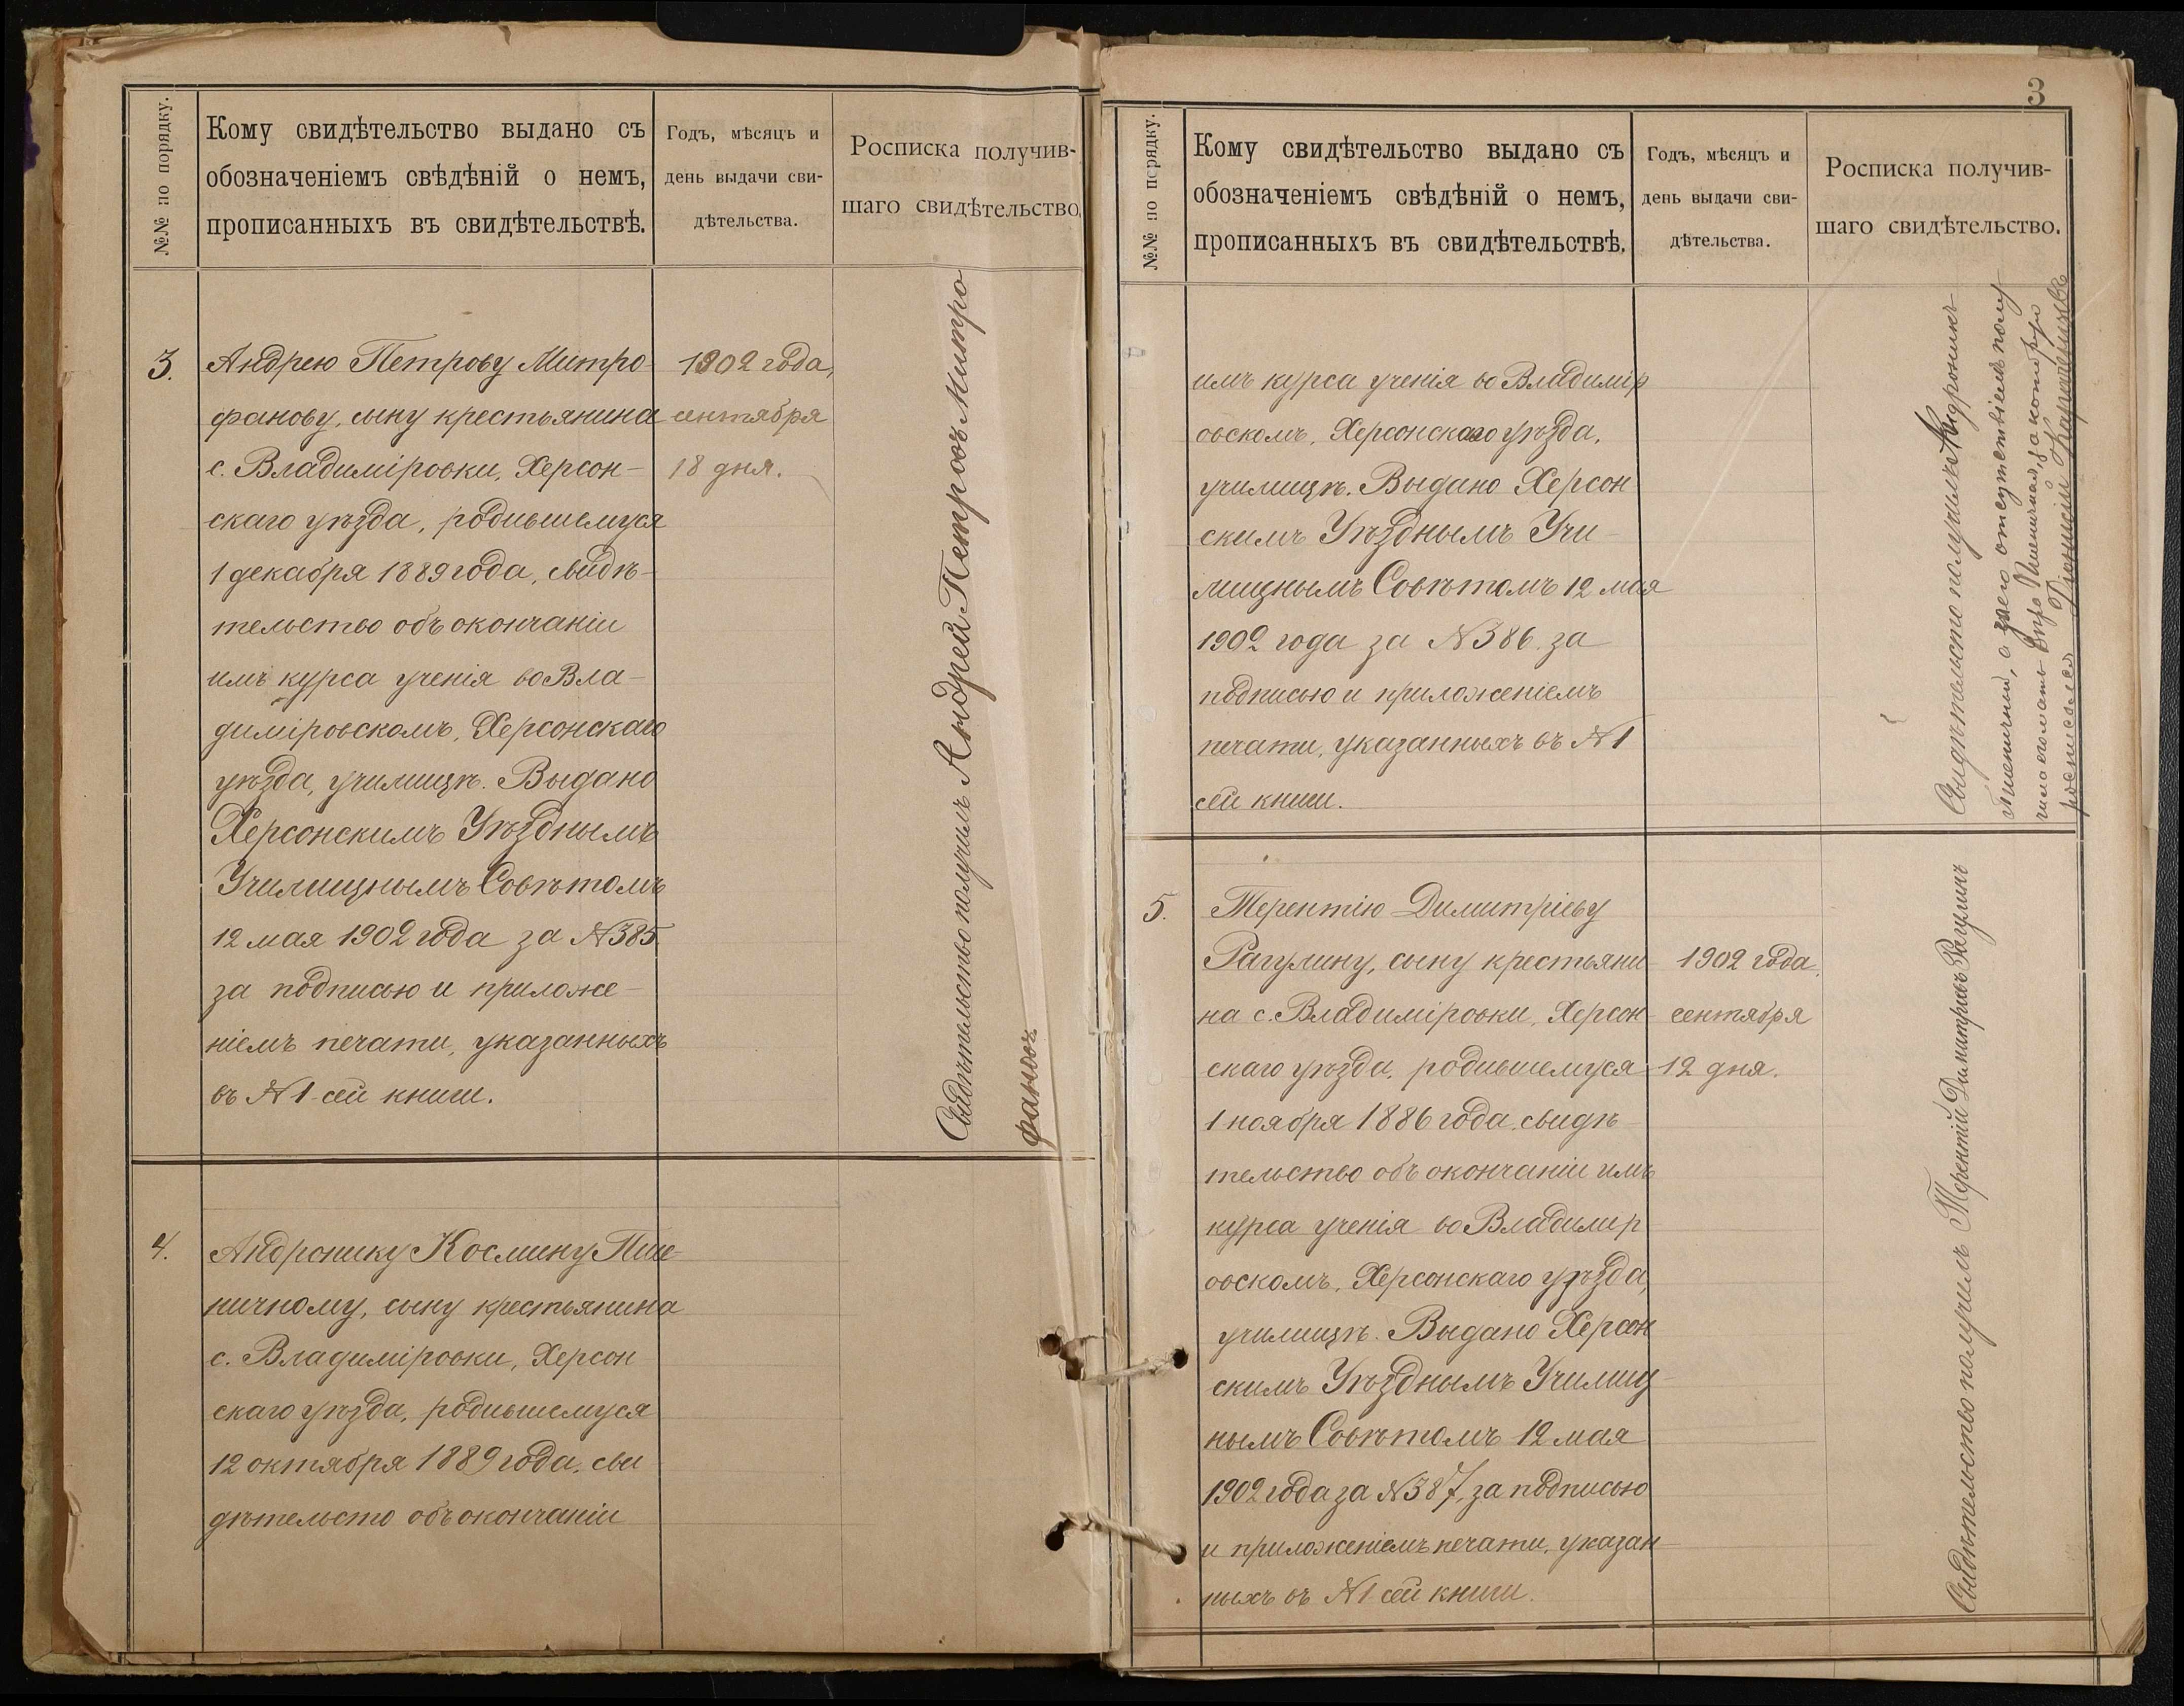 №№ по порядку.
Кому свидѣтельство выдано съ
обозначеніемъ свѣдѣній о немъ,
прописанныхъ въ свидѣтельствѣ.
Годъ, мѣсяцъ и
день выдачи сви-
дѣтельства.
Росписка получив-
шаго свидѣтельство.
3.
Андрею Петрову Митро-
фанову, сыну крестьянина
с. Владиміровки, Херсон-
скаго уѣзда, родившемуся
1 декабря 1889 года, свидѣ-
тельство объ окончаніи
имъ курса ученія во Вла-
диміровскомъ, Херсонскаго
уѣзда, училищѣ. Выдано
Херсонскимъ Уѣзднымъ
Училищнымъ Совѣтомъ
12 мая 1902 года за №385
за подписью и приложе-
ніемъ печати, указанныхъ
въ №1 сей книги.
1902 года,
сентября
18 дня.
Свидѣтельство получилъ Андрей Петровъ Митро
фановъ
4.
Андронику Космину Пше-
ничному, сыну крестьянина
с. Владиміровки, Херсон
скаго уѣзда, родившемуся
12 октября 1889 года, сви
дѣтельсто объ окончаніи
3
№№ по порядку.
Кому свидѣтельство выдано съ
обозначеніемъ свѣдѣній о немъ,
прописанныхъ въ свидѣтельствѣ.
Годъ, мѣсяцъ и
день выдачи сви-
дѣтельства.
Росписка получив-
шаго свидѣтельство.
имъ курса ученія во Владимір
овскомъ, Херсонскаго уѣзда,
училищѣ. Выдано Херсон
скимъ Уѣзднымъ Учи-
лищнымъ Совѣтомъ 12 мая
1902 года за №386 за
подписью и приложеніемъ
печати, указанныхъ въ №1
сей книги.
Свидѣтельсто получилъ Андроникъ
Пшеничный, а за его отсутствіемъ полу
чила мать Пшеничная, за которую
росписался Діонисій
5.
Терентію Димитріеву
Рагулину, сыну крестьяни-
на с. Владиміровки, Херсон-
скаго уѣзда, родившемуся
1 ноября 1886 года, свидѣ
тельство объ окончаніи имъ
курса ученія во Владимір
овскомъ, Херсонскаго уѣзда,
училищѣ. Выдано Херсон
скимъ Уѣзднымъ Училищ-
нымъ Совѣтомъ 12 мая
1902 года за №387, за подписью
и приложеніемъ печати, указан-
ныхъ въ №1 сей книги.
1902 года,
сентября
12 дня.
Свидѣтельство получилъ Терентій Димитріевъ Рагулинъ